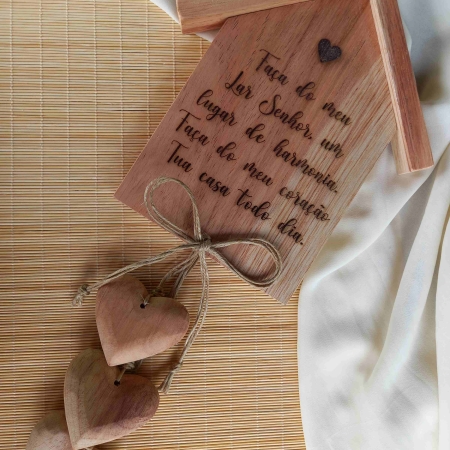 Faça do meu
Lar Senhor, um
lugar de harmonia.
Faça do meu coração
Tua casa todo dia.